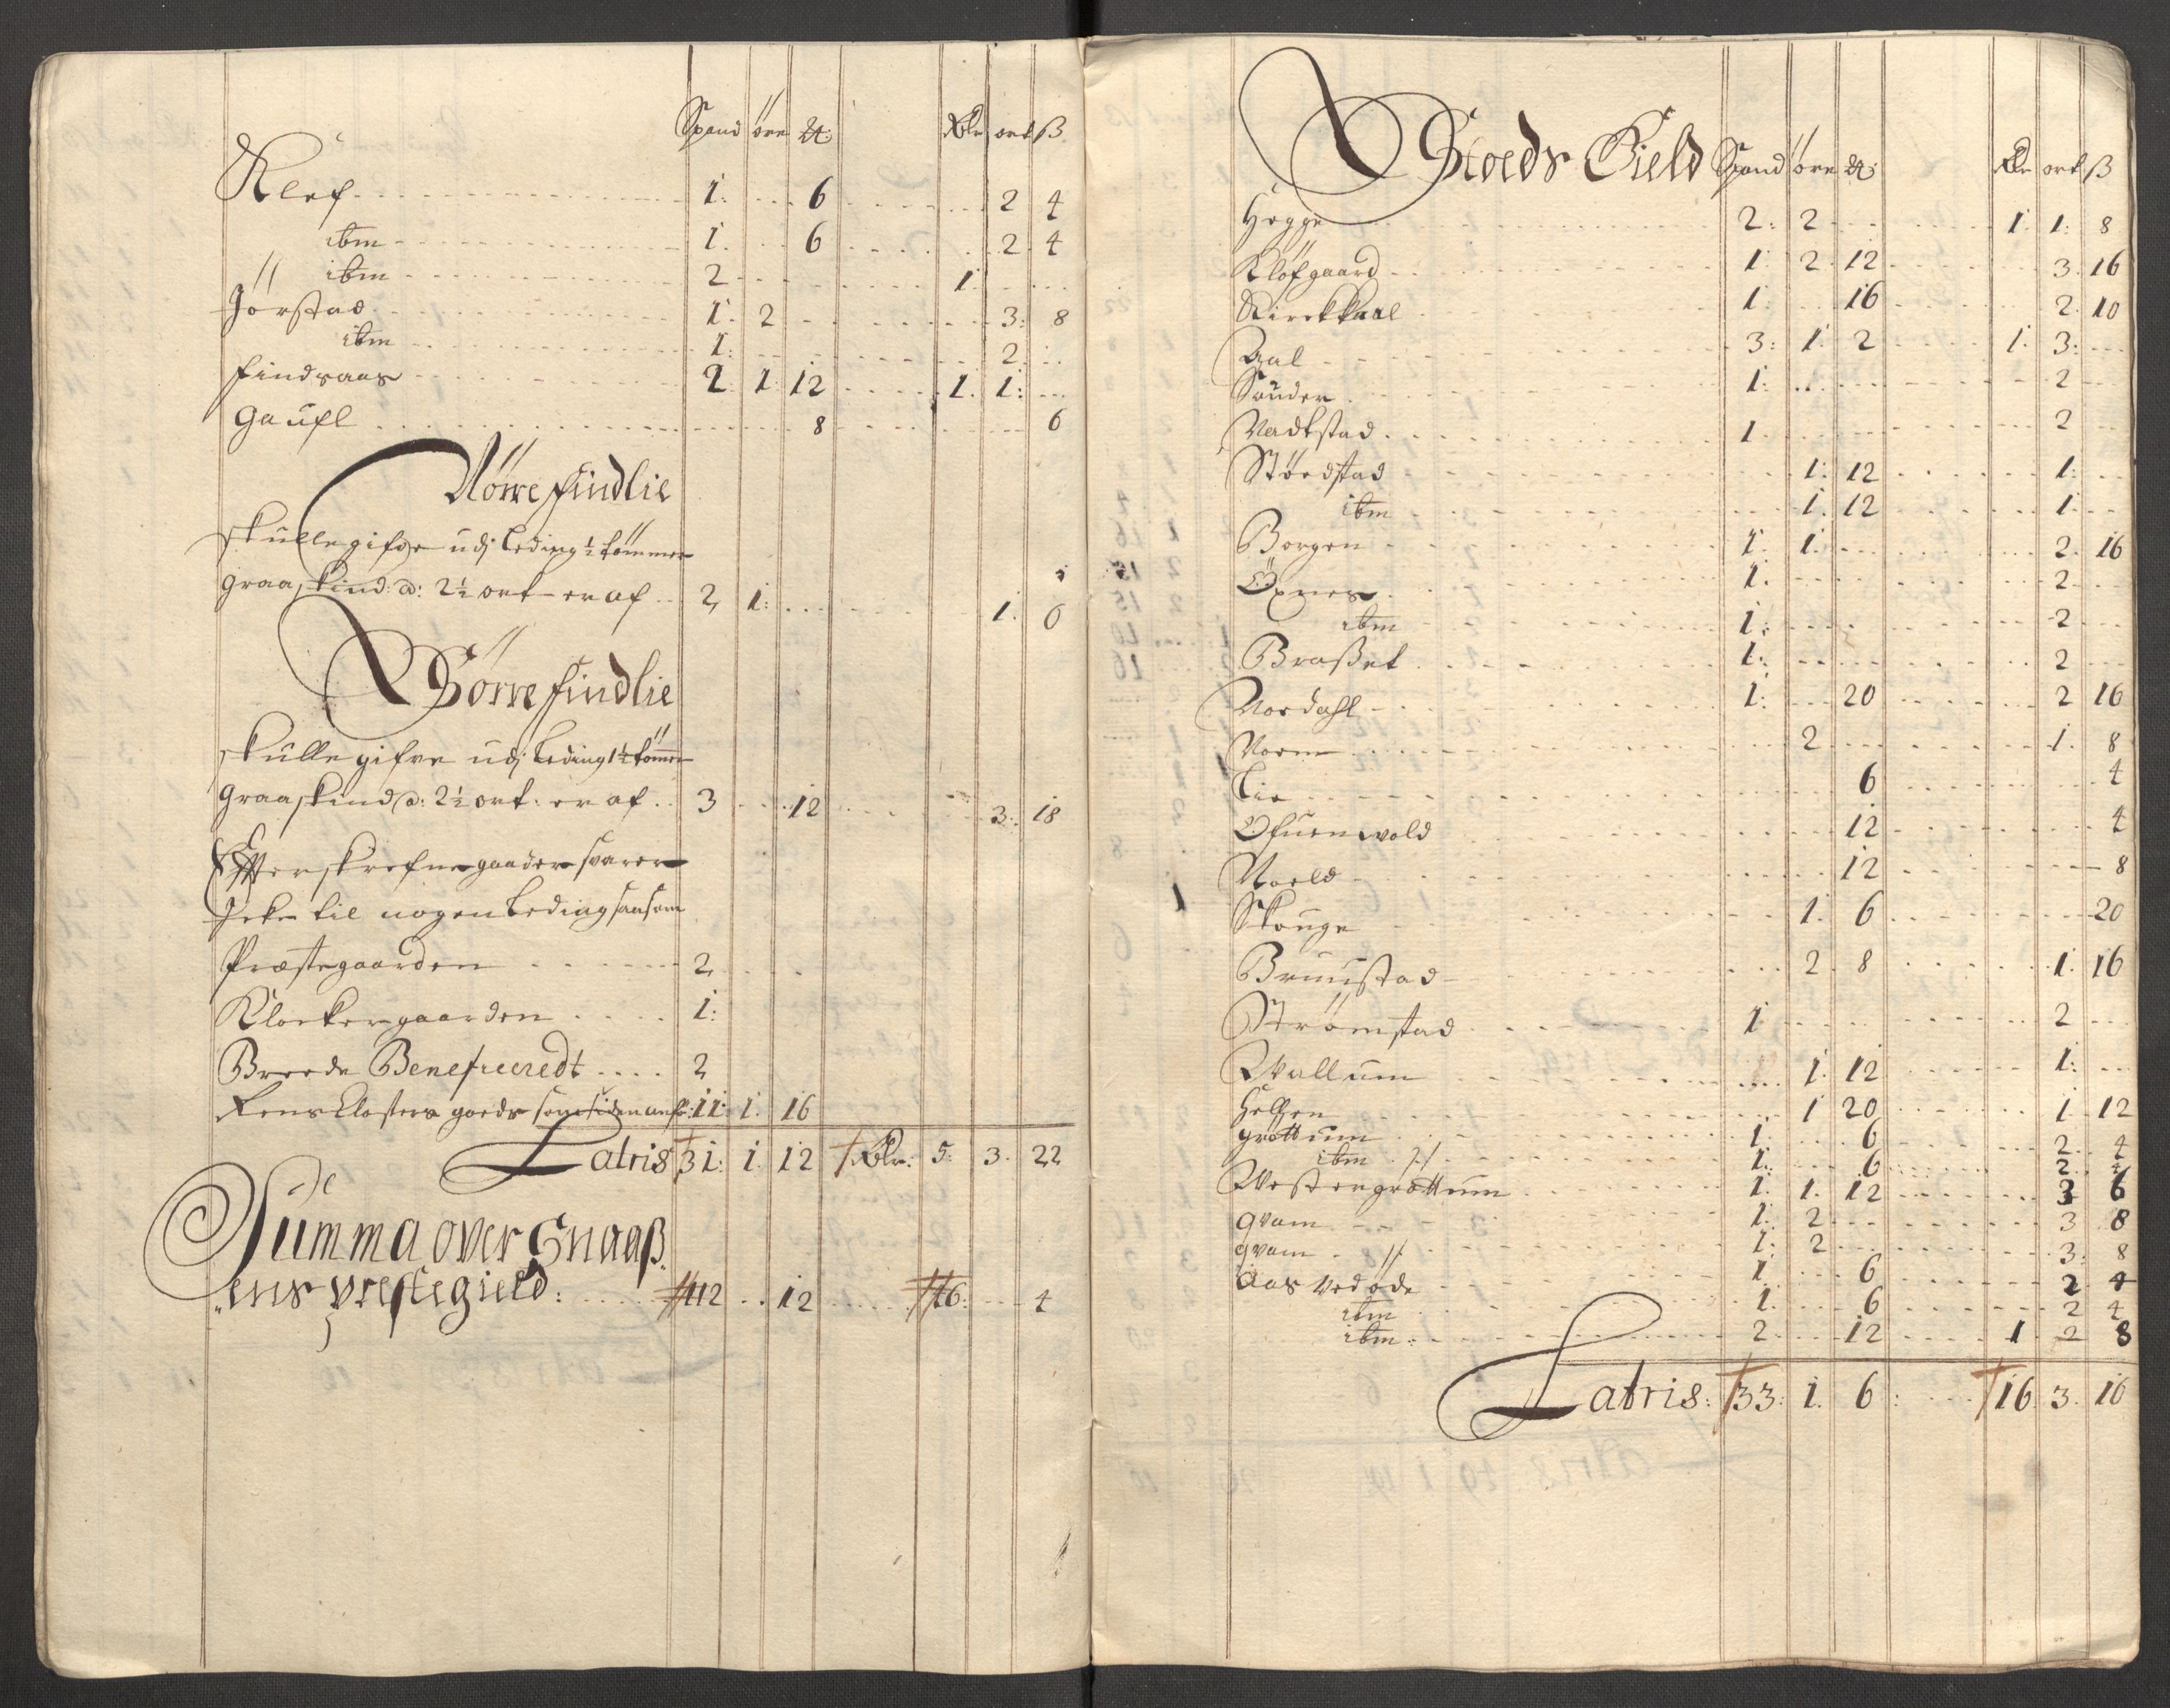 Spand öre ℔: Rdlr ort ß
Klef 1: 6 2 4
ibm 1. 6 2. 4
ibm 2 1.
Jörstad 1. 2 3. 8
ibm 1: 2.
Findsaas 2. 1. 12 1. 1:
Gaufl 8 6
Nörre Findlie
skulle gifve udj Leding ½ tömmer
graaskind: a: 2½ ort er af 2 1: 1. 6
Sörre Findlie
skulle gifve udj Leding 1½ tömmer
graaskind a: 2½ ort: er af 3 12 3. 18
Efterskrefne gaarder svarer
Icke til nogen Leding saasom
Præstegaarden 2
Klockergaarden 1:
Brede Beneficeredt 2
Reins Closters goeds 11: 1. 16
Latris 31: 1. 12 Rdlr: 5. 3. 22
Summa over Snaaß
ens prestegield: 112 12 16: 4
Stoeds Gield Spand öre ℔: Rdlr ort ß
Hegge 2: 2 1. 1. 8
Klöfgaard 1. 2. 12 3. 16
Kirckkaal 1. 16 2. 10
Aal 3: 1. 2 1. 3:
Sunder 1: 2
Vadkstad 1. 2
Stördstad 1. 12 1:
ibm 1. 12 1:
Borgen 1. 1. 2. 16
Öxnes 1. 2
ibm 1: 2
Braßet 1: 2
Nordahl 1: 20 2 16
Vorm 2 1. 8
Lie 6 4
Ofuenwold 12 4
Woeld 12 8
Skouge 1. 6 20
Bruustad 2. 8 1. 16
Strömstad 1 2
Wallum 1. 12 1:
Helgen 1 20 1 12
Gröttum 1. 6 2. 4
ibm 1. 6 2. 4
Westergröttum 1. 1. 12 3 6
qvam 1. 2 3 8
qvam 1: 2 3. 8
Aas ved öde 1 6 2 4
ibm 1. 6 2 4
ibm: 2 12 1 2 8
Latris: 33: 1. 6: 16 3. 16